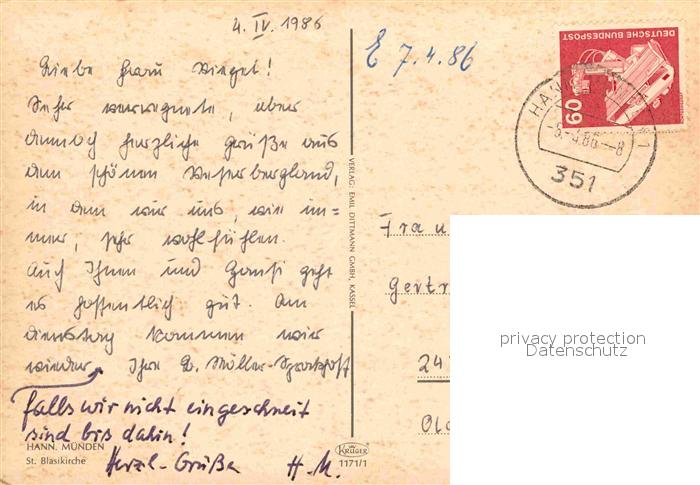 4. IV. 1986
Liebe Frau Siegel!
Sehr verregnete, aber
dennoch herzliche Grüße aus
dem schönen Weserbergland,
in dem wir uns, wie im-
mer, sehr wohlfühlen.
Auch Ihnen und Hansi geht
es hoffentlich gut. Am
Dienstag kommen wir
wieder. Ihre Müller-
falls wir nicht eingeschneit
sind bis dahin!
Herzl. Grüße H. M.
HANN. MÜNDEN
St. Blasikirche
VERLAG: EMIL DITTMANN GMBH, KASSEL
KRÜGER
1171/1
E 7.4.86
DEUTSCHE BUNDESPOST
60
HANN
86-8
351
1
Frau
Gertr
24
Old
privacy protection
Datenschutz